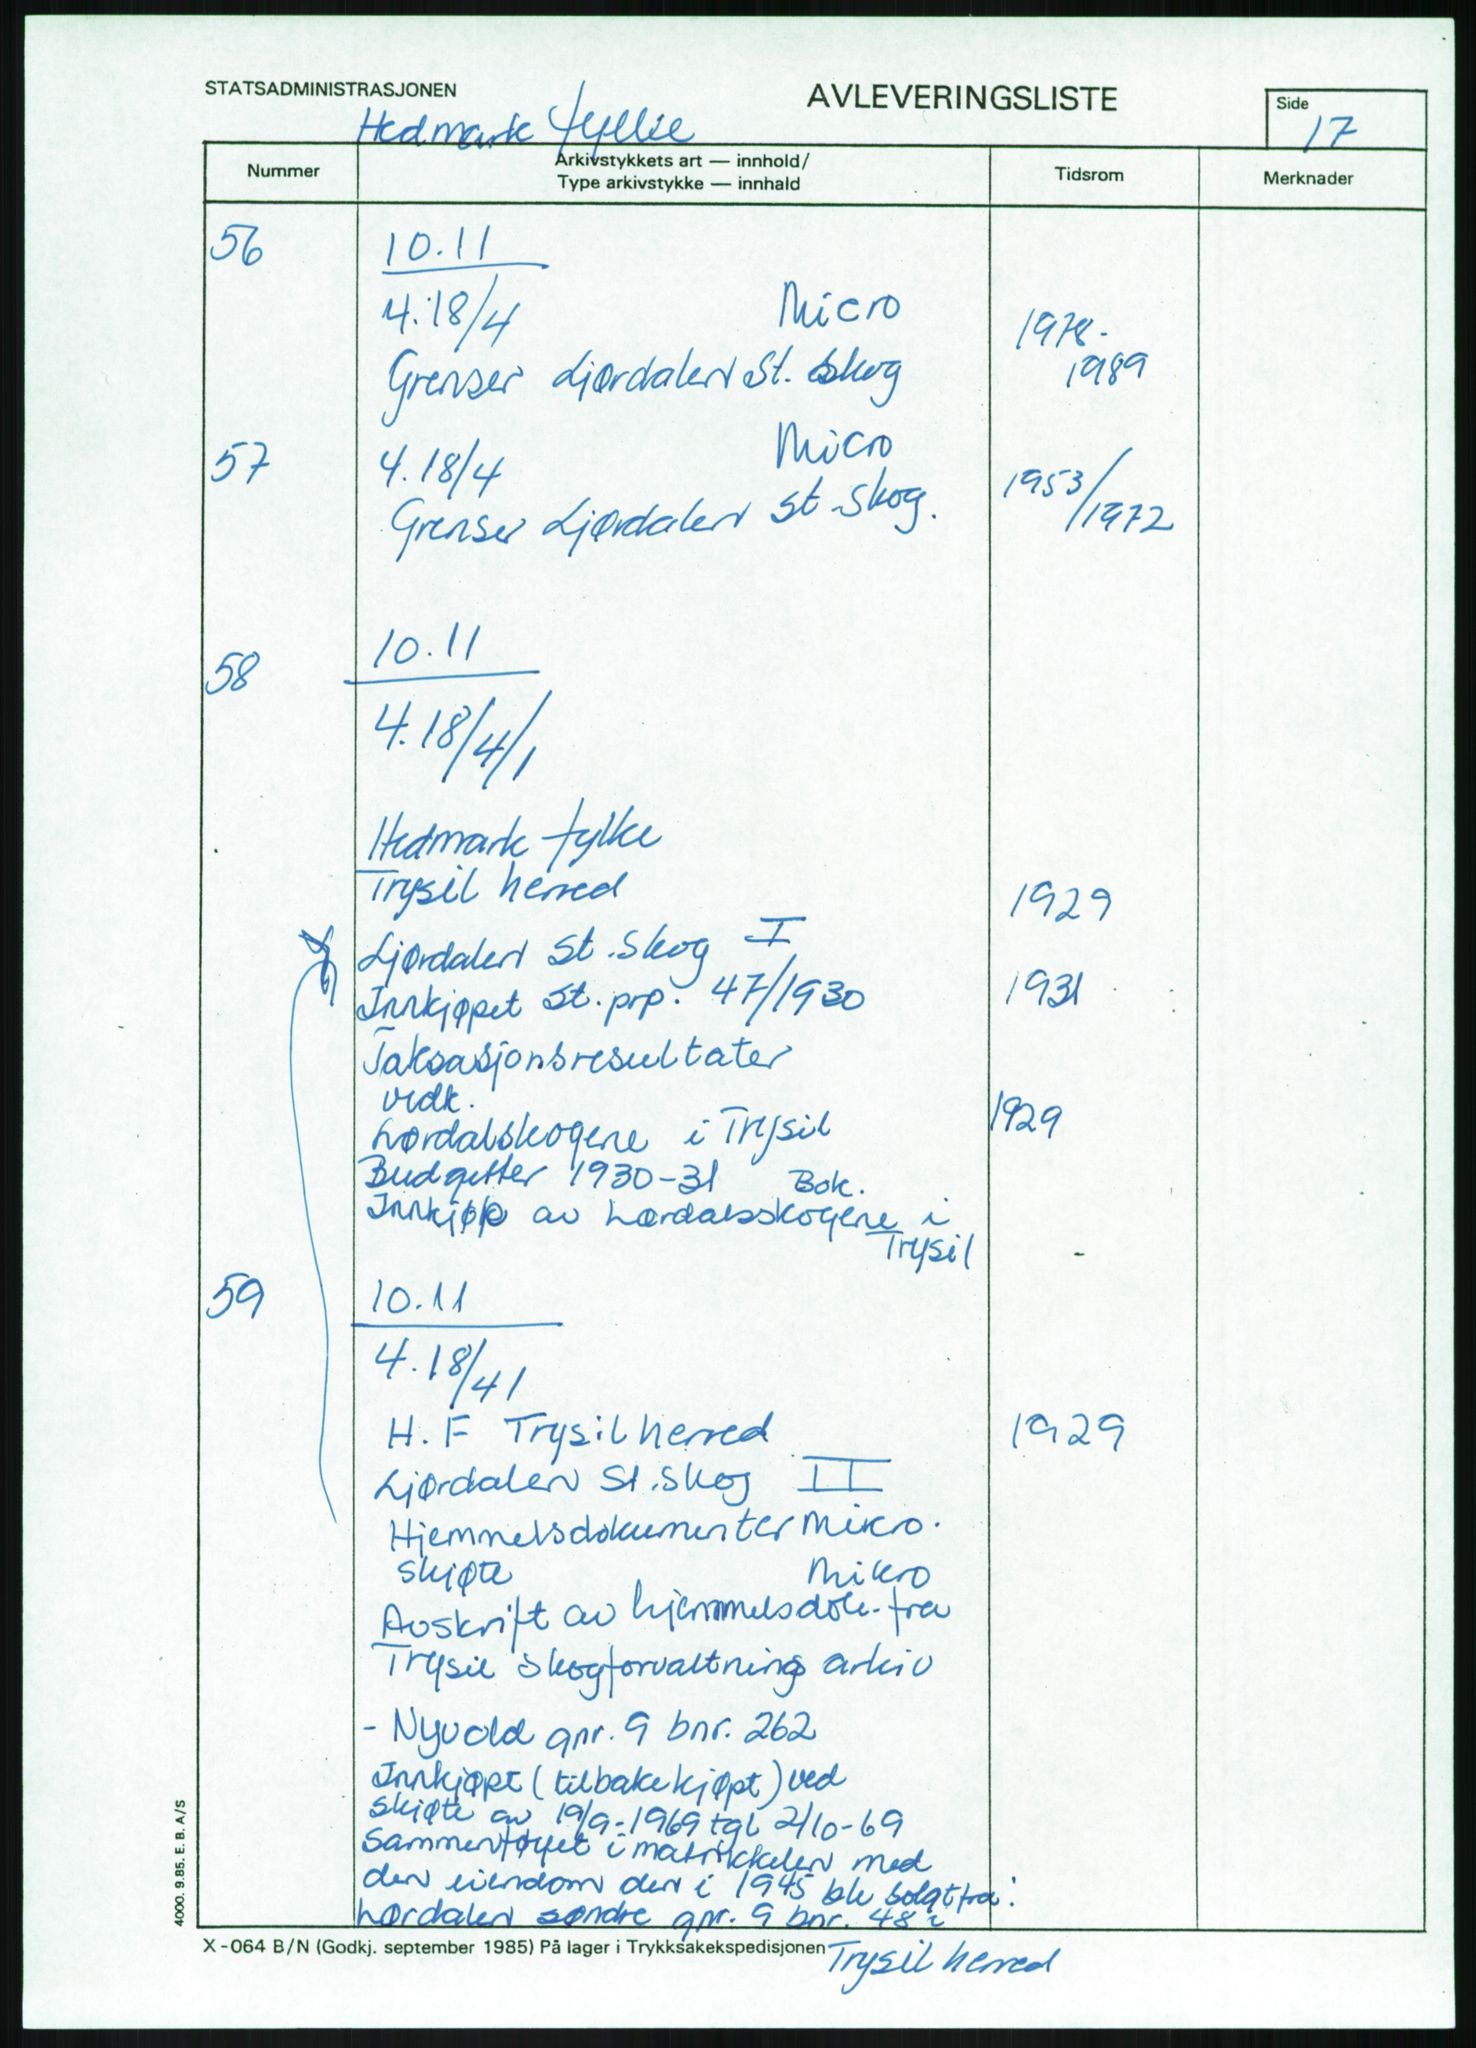 STATSADMINISTRASJONEN
AVLEVERINGSLISTE
Side
17
Hedmark fylke
Nummer
Arkivstykkets art — innhold/
Type arkivstykke — innhald
Tidsrom
Merknader
56
10.11
4.18/4 Micro
1978-
Grenser Ljørdalen St. skog
1989
57
4.18/4 Micro
1953/
Grenser Ljørdalen St. Skog.
1972
58
10.11
4.18/4/1
Hedmark fylke
Trysil herred 1929
Ljørdalen St. Skog I
Innkjøpet St. prp. 47/1930 1931
Taksasjonsresultater
vedk.
Lørdalskogene i Trysil 1929
Budgetter 1930-31 Bok.
Innkjøp av Lørdalsskogene i
Trysil
59
10.11
4.18/41
H. F Trysil herred 1929
Ljørdalen St. Skog II
Hjemmelsdokumenter Mikro.
Skjøte Mikro
Avskrift av hjemmelsdok. fra
Trysil skogforvaltnings arkiv
- Nyvold gnr. 9 bnr. 262
Innkjøpt (tilbakekjøpt) ved
skjøte av 19/9-1969 tgl 2/10-69
Sammenføyet i matrikkelen med
den eiendom den i 1945 ble solgt fra:
Lørdalen søndre gnr. 9 bnr. 48 i
Trysil herred
X-064 B/N (Godkj. september 1985) På lager i Trykksakekspedisjonen
4000. 9.85. E. B. A/S